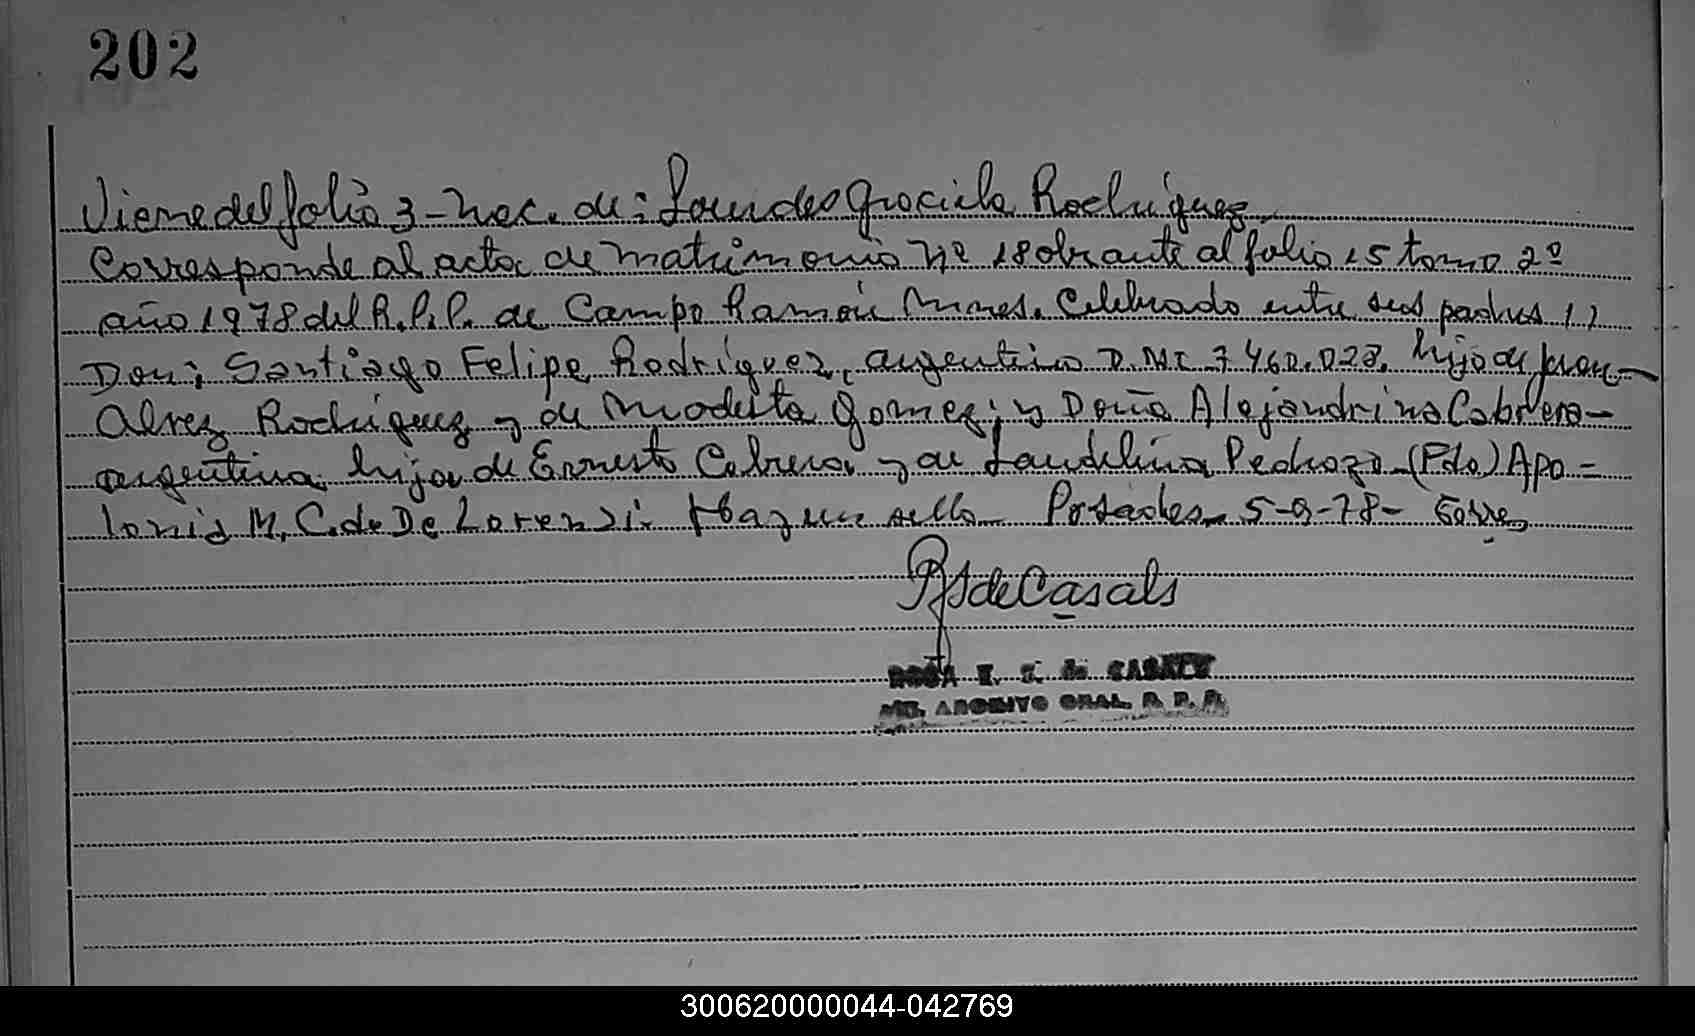 202
Viene del folio 3 - nac. de: Lourdes Graciela Rodriguez
Corresponde al acta de matrimonio Nº 18 obrante al folio 15 tomo 2º
año 1978 del R.P.P. de Campo Ramón Mnes. Celebrado entre sus padres
Don: Santiago Felipe Rodríguez, argentino D.N.I. 7.460.028. hijo de Juan
Alvez Rodriguez y de Modesta Gomez; y Doña Alejandrina Cabrera-
argentina hija de Ernesto Cabrera y de Laudelina Pedrozo (Fdo) Apo=
lonia M. C. de De Lorenzi. Hay un sello - Posadas 5-9-78-
RS de Casals
ROSA E. S. de CASALS
ARCHIVO GRAL. R. P. P.
300620000044-042769